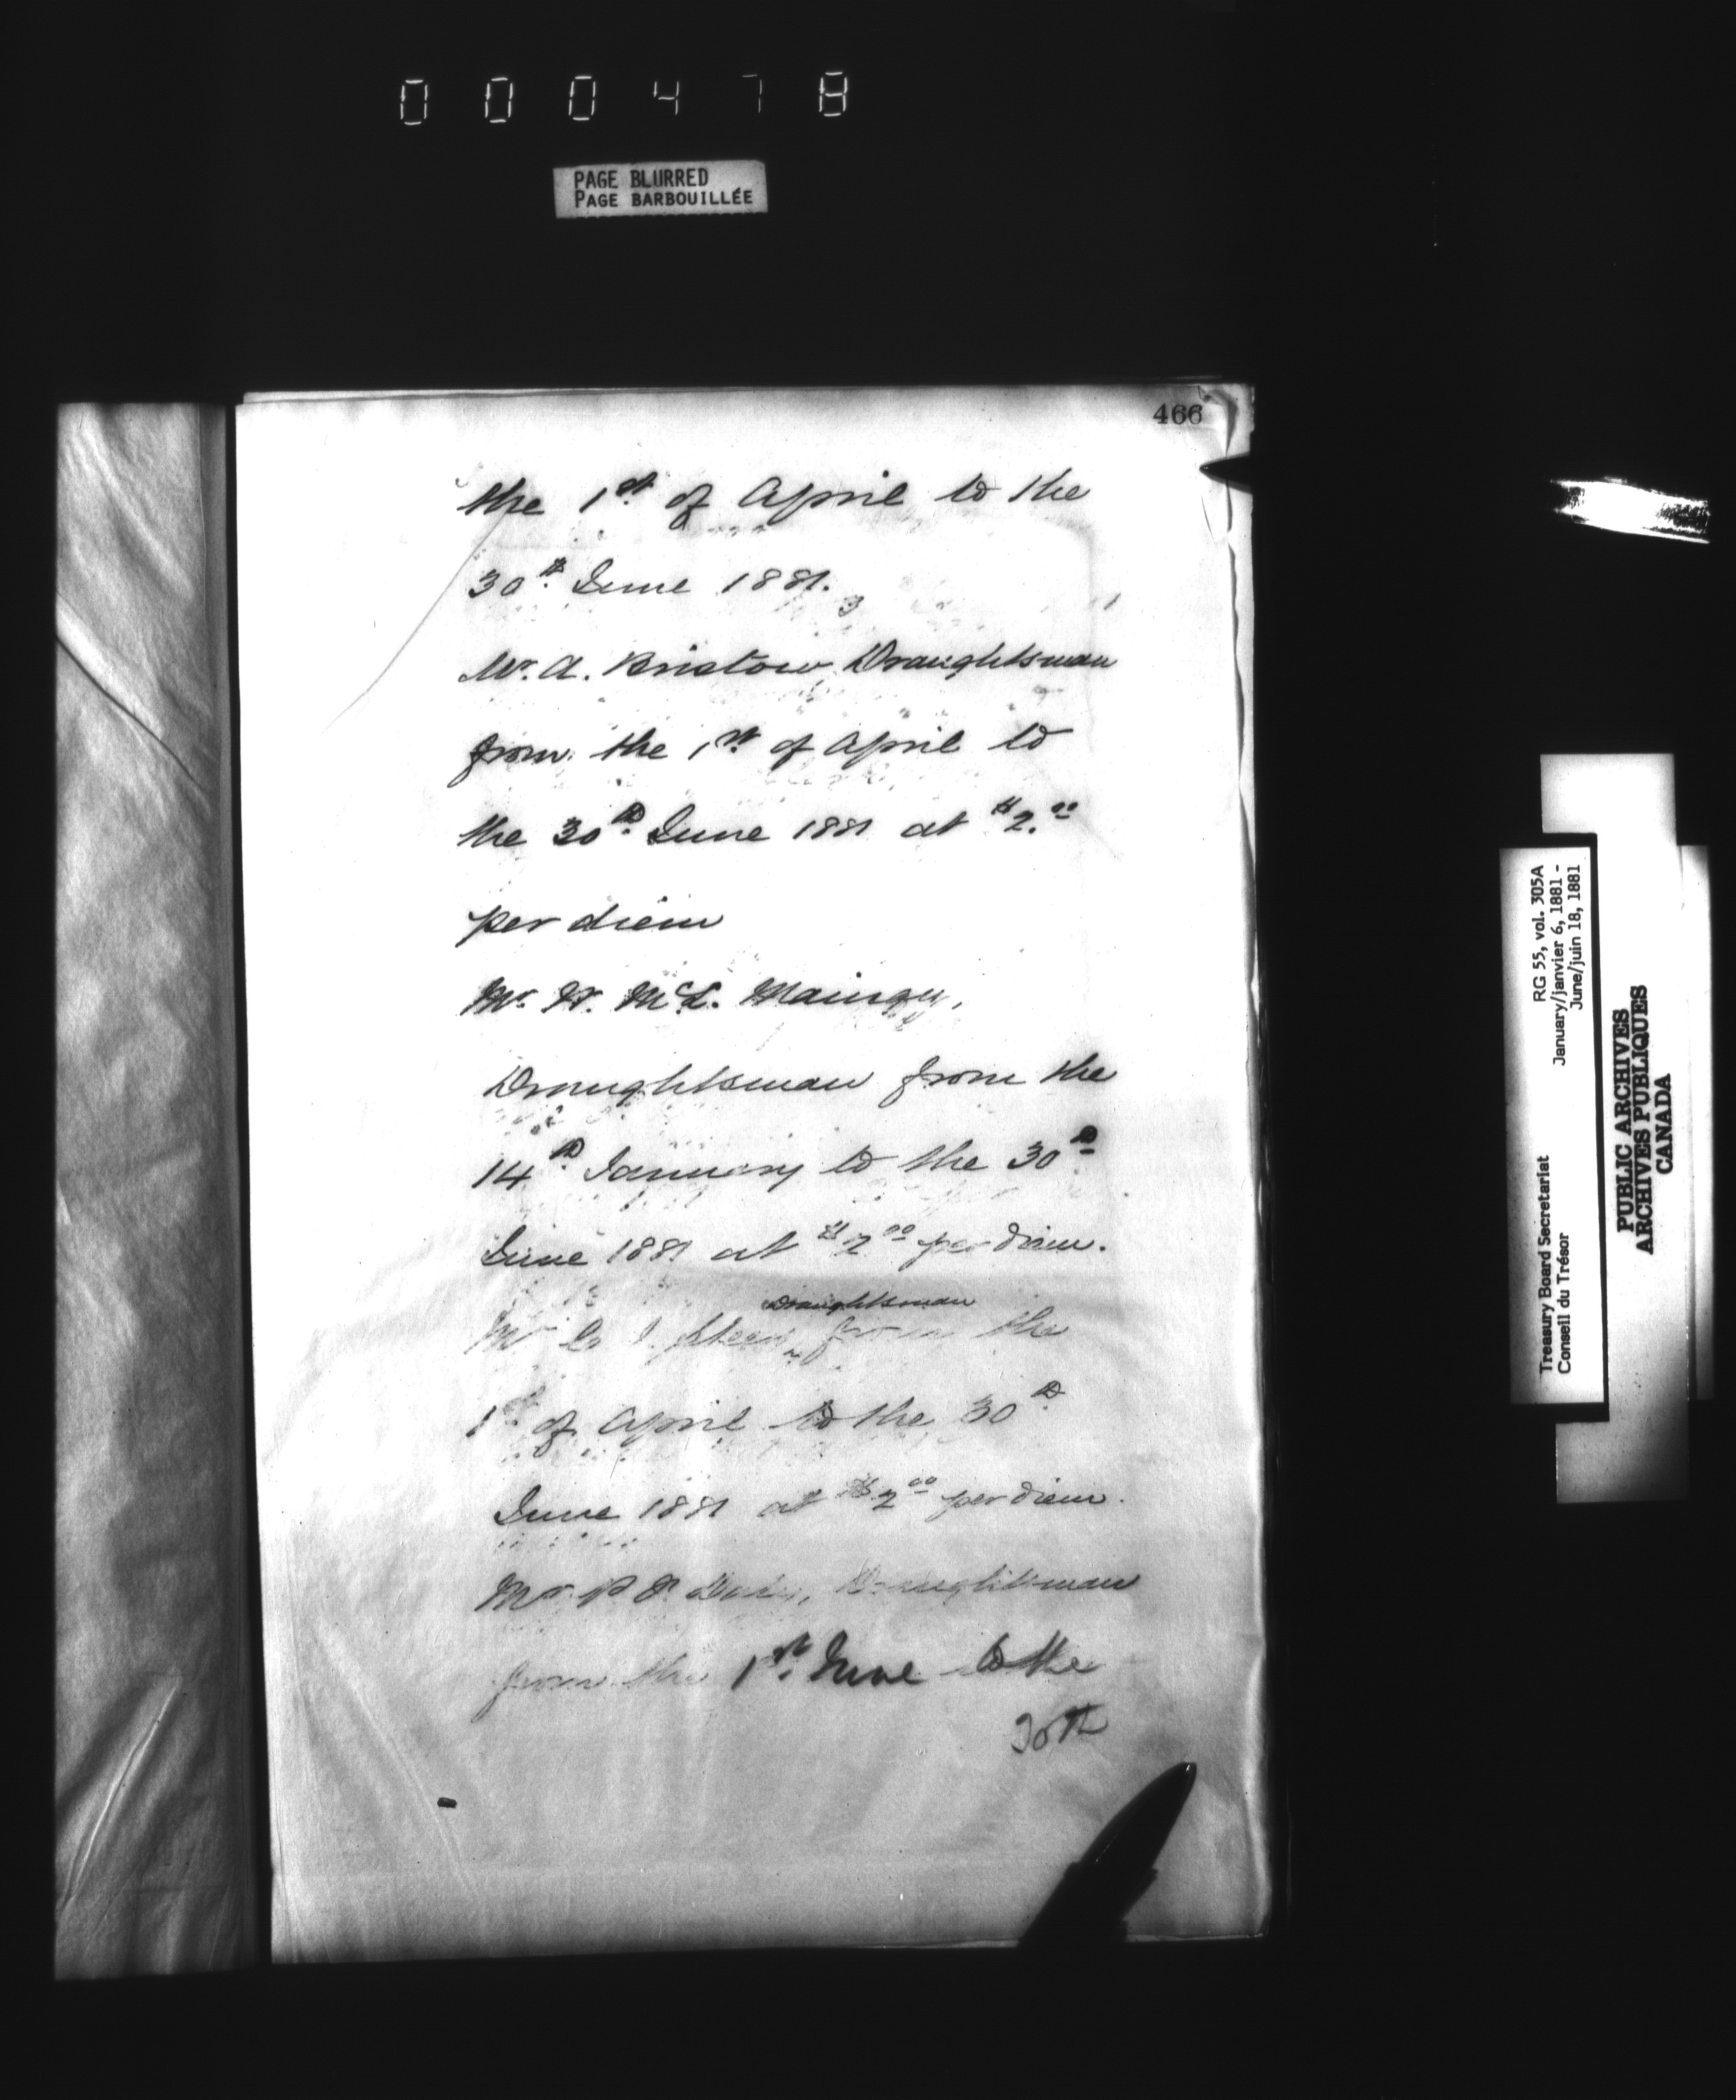 000478
PAGE BLURRED
PAGE BARBOUILLÉE
466
the 1st of April to the
30th June 1881.
3
Mr. A. Bristow, Draughtsman
from the 1st of April to
the 30th June 1881 at $2.00
per diem
Mr. W. McL. Maingy,
Draughtsman from the
14th January to the 30th
June 1881 at $2.00 per diem.
Draughtsman
Mr from the
1st of April to the 30th
June 1881 at $2.00 per diem.
Mr. P. Draughtsman
from the 1st June to the
30th
RG 55, vol. 305A
January/janvier 6, 1881 -
June/juin 18, 1881
Treasury Board Secretariat
Conseil du Trésor
PUBLIC ARCHIVES
ARCHIVES PUBLIQUES
CANADA